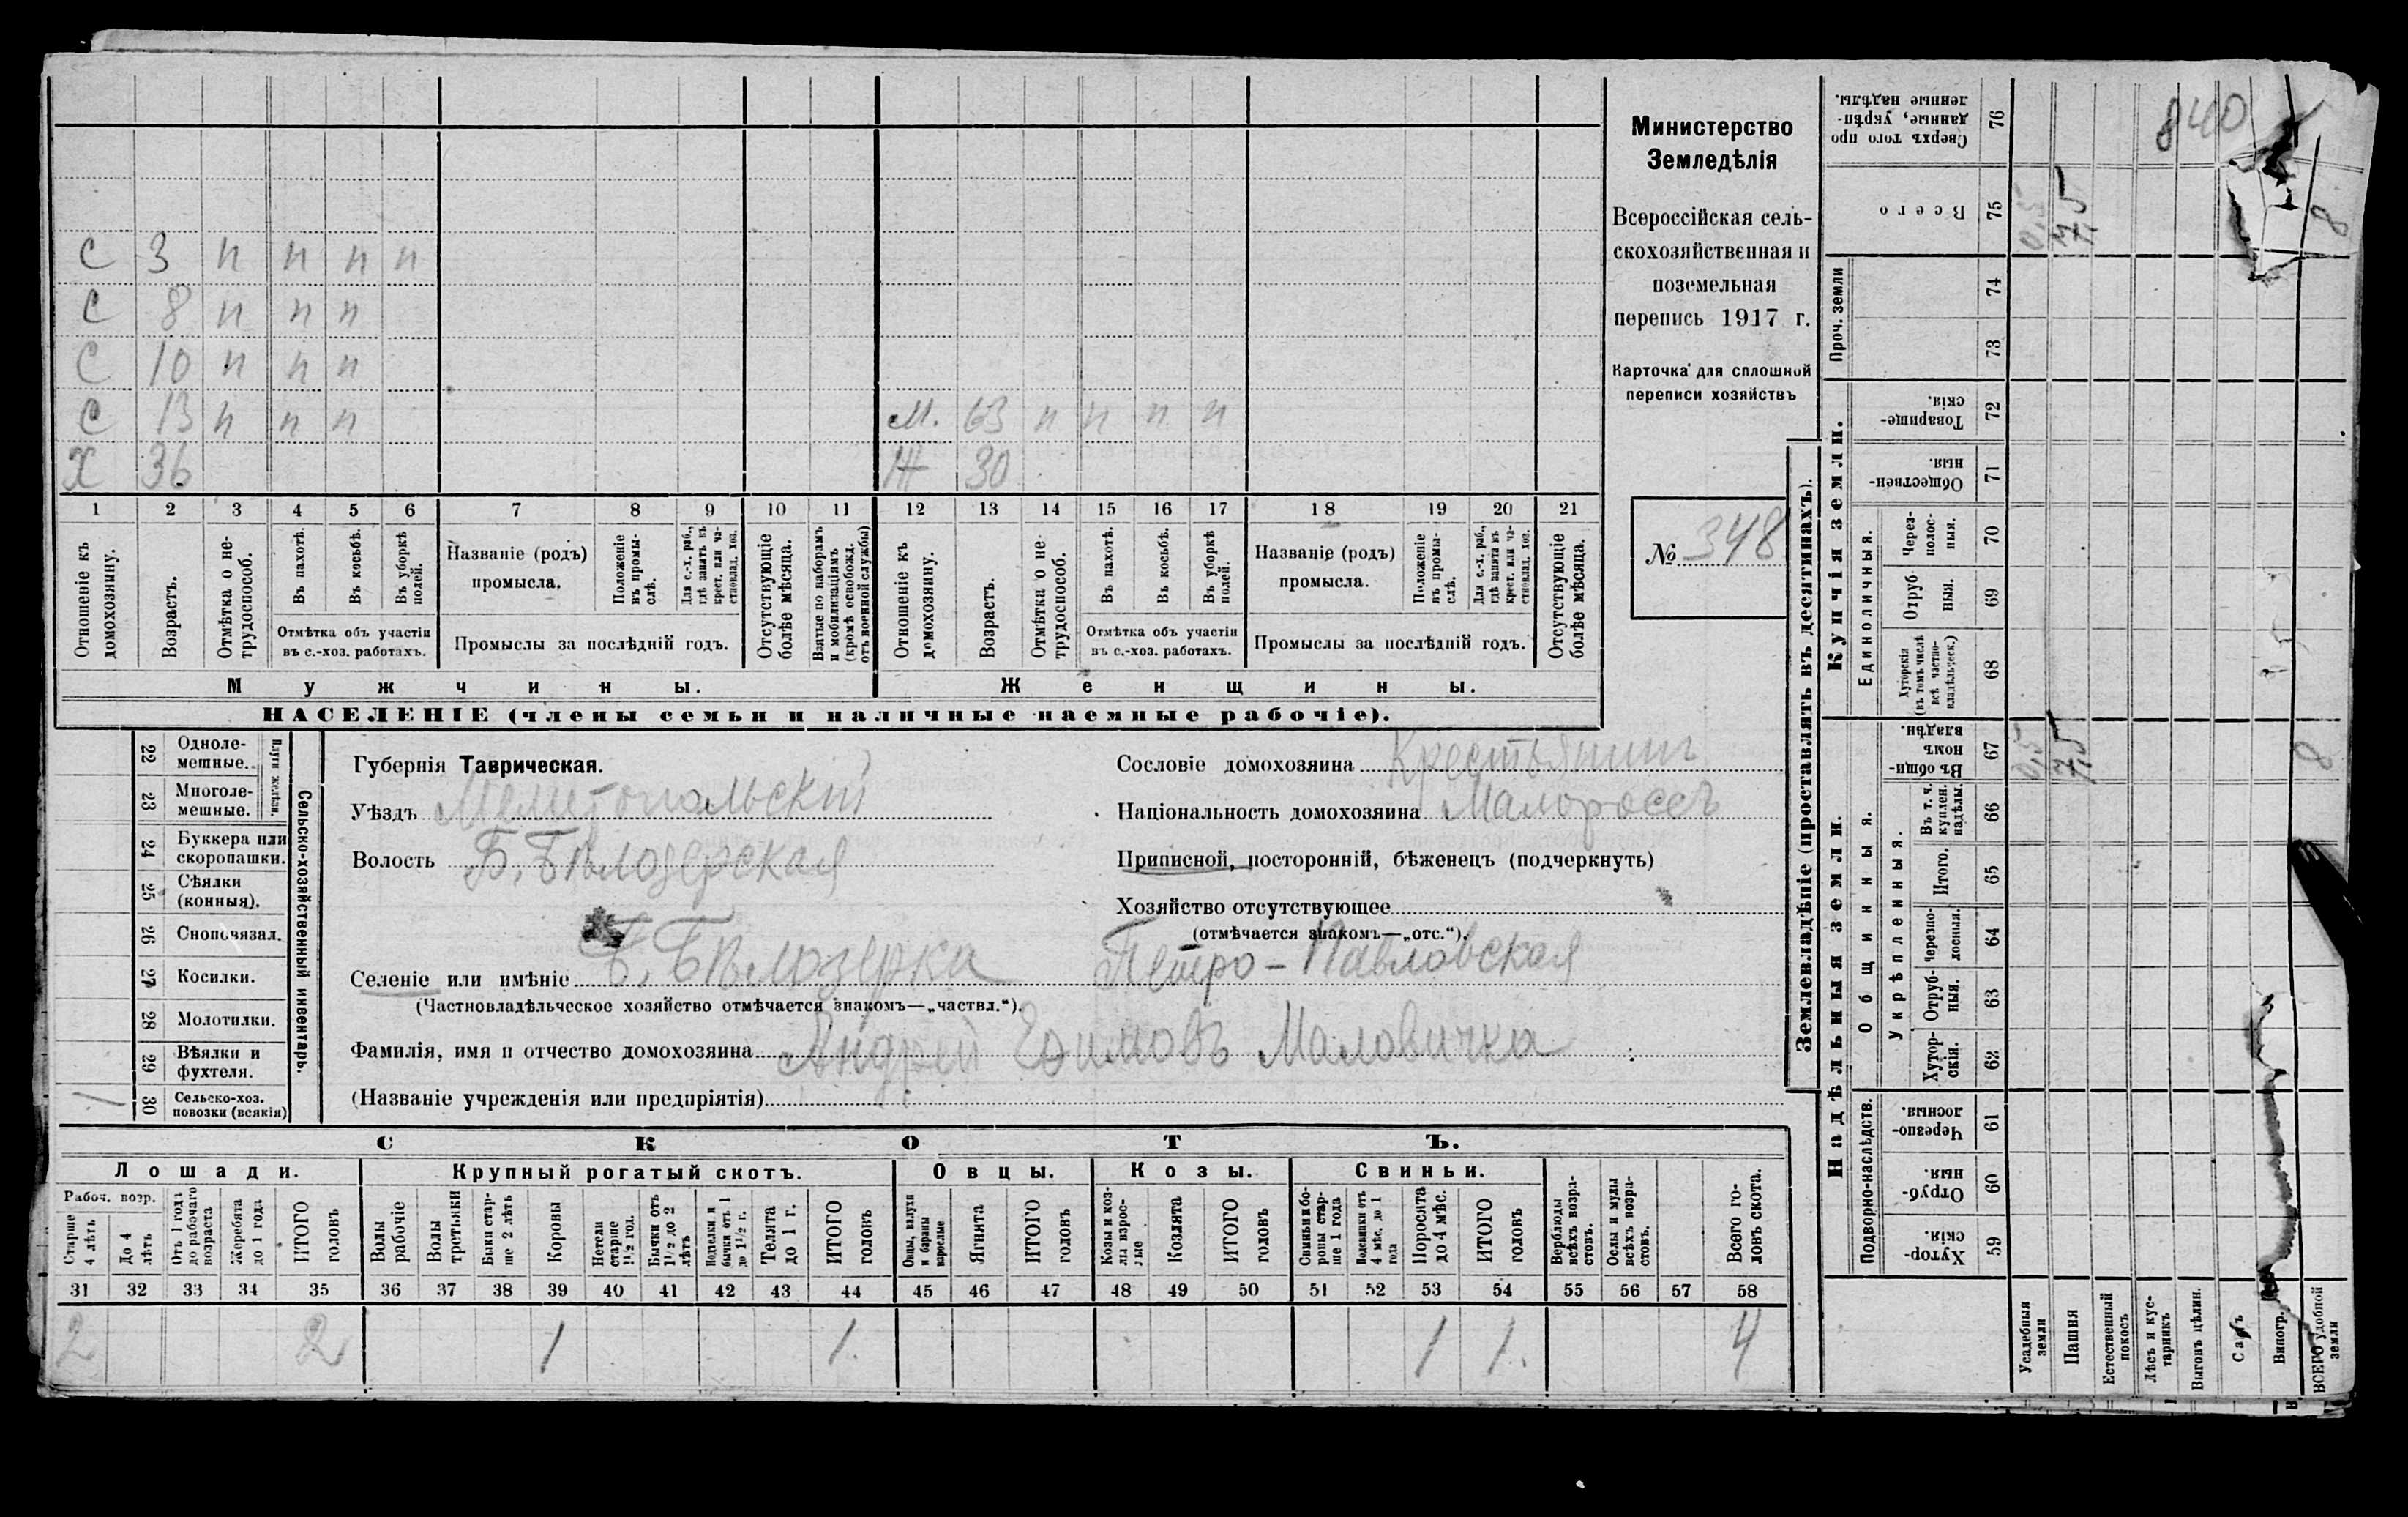 С 3 п п п п
С 8 п п п
С 10 п п п
С 13 п п п м. 63 п п п п
Х 36 Ж 30
1 2 3 4 5 6 7 8 9 10 11 12 13 14 15 16 17 18 19 20 21
Отношеніе къ домохозяину.
Возрастъ.
Отмѣтка о нетрудоспособ.
Въ пахотѣ.
Въ косьбѣ.
Въ уборкѣ полей.
Отмѣтка объ участіи въ с.-хоз. работахъ.
Названіе (родъ) промысла.
Положеніе въ промыслѣ.
Для с.-х. раб., гдѣ занятъ въ крест. или частновлад. хоз.
Промыслы за послѣдній годъ.
Отсутствующіе болѣе мѣсяца.
Взятые по наборамъ и мобилизаціямъ (кромѣ освобожд. отъ военной службы)
Отношеніе къ домохозяину.
Возрастъ.
Отмѣтка о нетрудоспособ.
Въ пахотѣ.
Въ косьбѣ.
Въ уборкѣ полей.
Отмѣтка объ участіи въ с.-хоз. работахъ.
Названіе (родъ) промысла.
Положеніе въ промыслѣ.
Для с.-х. раб., гдѣ занята въ крест. или частновлад. хоз.
Промыслы за послѣдній годъ.
Отсутствующіе болѣе мѣсяца.
Мужчины. Женщины.
НАСЕЛЕНІЕ (члены семьи и наличные наемные рабочіе).
Министерство
Земледѣлія
Всероссійская сель-
скохозяйственная и
поземельная
перепись 1917 г.
Карточка для сплошной
переписи хозяйствъ
№ 348
Сельско-хозяйственный инвентарь.
Плуги желѣзн.
22 Однолемешные.
23 Многолемешные.
24 Буккера или скоропашки.
25 Сѣялки (конныя).
26 Сноповязал.
27 Косилки.
28 Молотилки.
29 Вѣялки и фухтеля.
1 30 Сельско-хоз. повозки (всякія)
Губернія Таврическая.
Уѣздъ Мелитопольскій
Волость Б. Бѣлозерская
Сословіе домохозяина Крестьянинъ
Національность домохозяина Малороссъ
Приписной, посторонній, бѣженецъ (подчеркнуть)
Хозяйство отсутствующее
(отмѣчается знакомъ—„отс.“).
Селеніе или имѣніе Б. Бѣлозерка Петро-Павловская
(Частновладѣльческое хозяйство отмѣчается знакомъ—„частвл.“).
Фамилія, имя и отчество домохозяина Андрей Ефимовъ Маловичка
(Названіе учрежденія или предпріятія)
СКОТЪ.
Лошади. Крупный рогатый скотъ. Овцы. Козы. Свиньи.
Рабоч. возр.
Старше 4 лѣтъ
До 4 лѣтъ
Отъ 1 года до рабочаго возраста
Жеребята до 1 года
ИТОГО головъ
Волы рабочіе
Волы третьяки
Быки старше 2 лѣтъ
Коровы
Нетели старше 1½ год.
Бычки отъ 1½ до 2 лѣтъ
Нетелки и бычки отъ 1 до 1½ г.
Телята до 1 г.
ИТОГО головъ
Овцы, валухи и бараны взрослые
Ягнята
ИТОГО головъ
Козы и козлы взрослые
Козлята
ИТОГО головъ
Свиньи и бороны старше 1 года
Подсвинки отъ 4 мѣс. до 1 года
Поросята до 4 мѣс.
ИТОГО головъ
Верблюды всѣхъ возрастовъ.
Ослы и мулы всѣхъ возрастовъ.
Всего головъ скота.
31 32 33 34 35 36 37 38 39 40 41 42 43 44 45 46 47 48 49 50 51 52 53 54 55 56 57 58
2 2 1 1. 1 1. 4
Землевладѣніе (проставлять въ десятинахъ).
840
Сверхъ того проданные, укрѣпленные надѣлы. 76
Всего 75 0,5 7,5 8.
Проч. земли 74 73
Купчія земли.
Товарищескія. 72
Общественныя. 71
Единоличныя.
Черезполосныя. 70
Отрубныя. 69
Хуторскія (въ томъ числѣ всѣ частновладѣльческ.) 68
Надѣльныя земли.
Общинныя.
Въ общинномъ владѣн. 67 0,5 7,5 8
Укрѣпленныя.
Въ т. ч. куплен. надѣлы. 66
Итого. 65
Черезполосныя. 64
Отрубныя. 63
Хуторскія. 62
Подворно-наслѣдств.
Черезполосныя. 61
Отрубныя. 60
Хуторскія. 59
Усадебныя земли
Пашня
Естественный покосъ
Лѣсъ и кустарникъ
Выгонъ цѣлин.
Садъ
Виногр.
ВСЕГО удобной земли